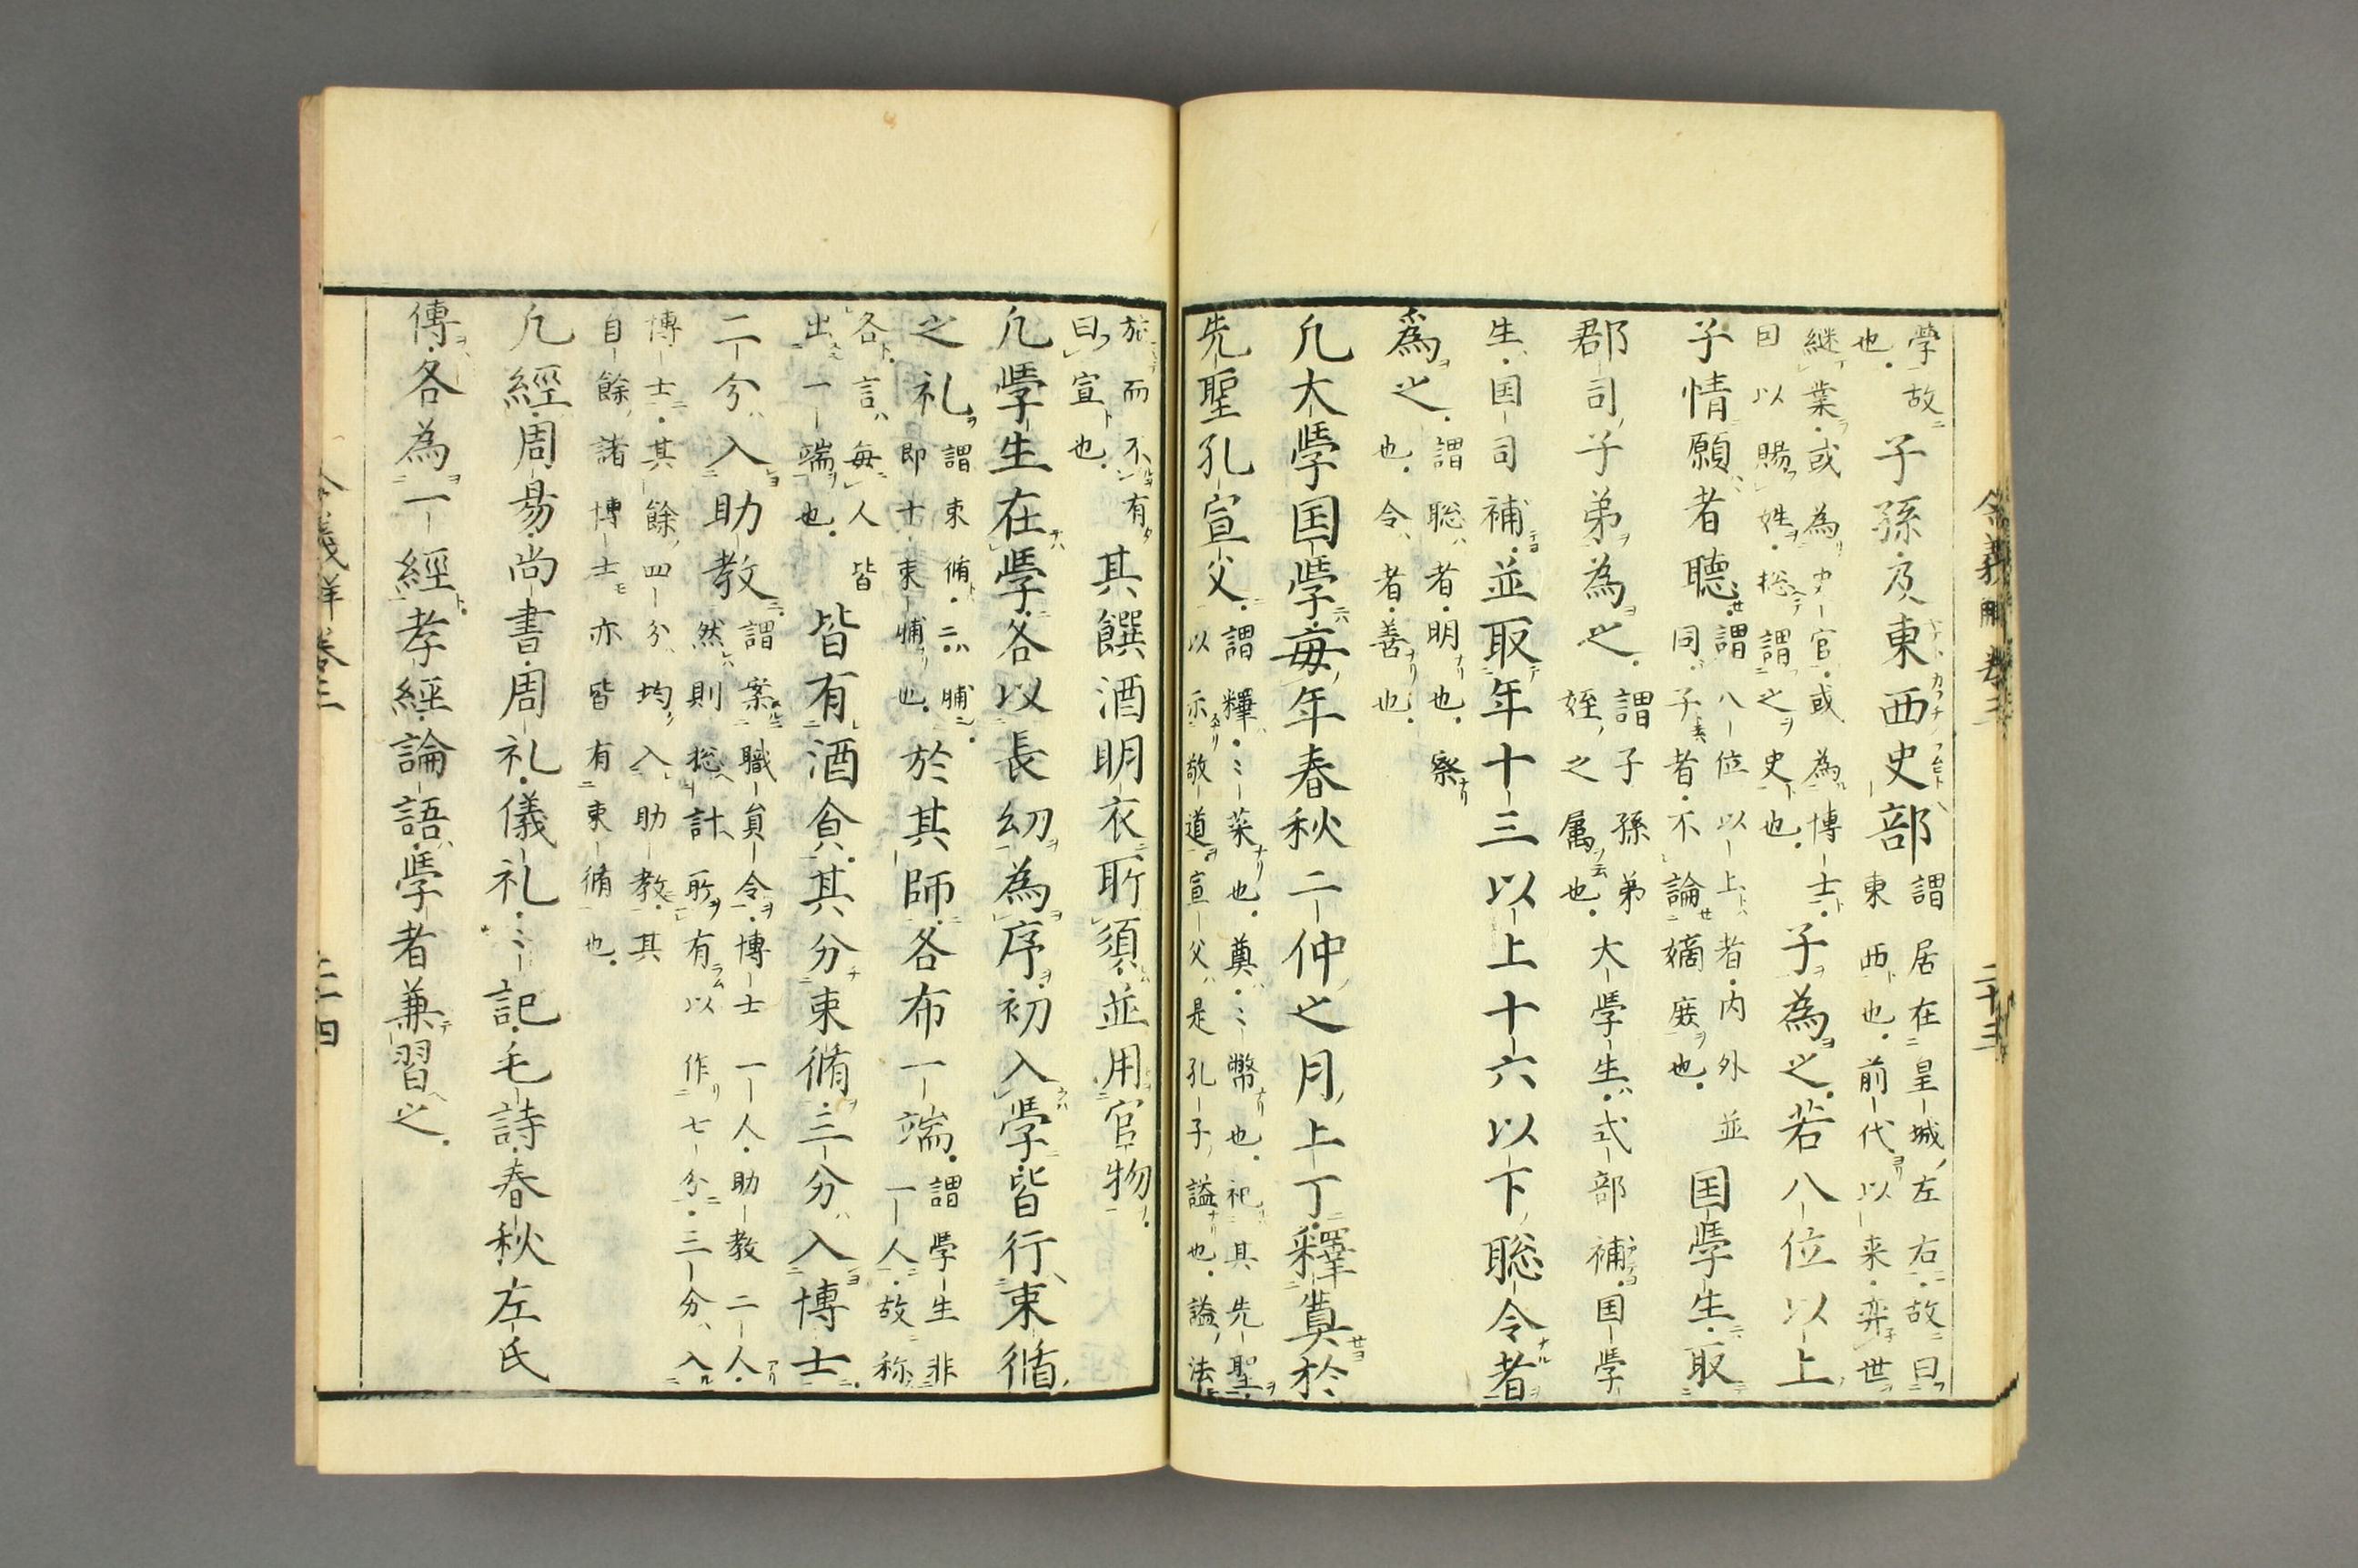 令義解 卷三 二十三
學故
也
子孫及東西史部
謂居在皇城左右故曰
東西也前代以来弈世
継業或為史官或為博士
因以賜姓総謂之史也
子為之若八位以上
子情願者聴
謂八位以上者内外並
同子者不論嫡庶也
国學生取
郡司子弟為之
謂子孫弟
姪之属也
大學生式部補国學
生国司補並取年十三以上十六以下聡令者
為之
謂聡者明也察
也令者善也
凢大學国學毎年春秋二仲之月上丁釋奠於
先聖孔宣父
謂釋〻菜也奠〻幣也祀其先聖
以示敬道宣父是孔子謚也謚法
旅而不有
曰宣也
其饌酒明衣所須並用官物
凢學生在學各以長幼為序初入學皆行束脩
之礼
謂束脩二脯
即十束脯也
於其師各布一端
謂學生非
一人故称
各言毎人皆
出一端也
皆有酒食其分束脩三分入博士
二分入助教
謂案職員令博士一人助教二人
然則総計所有以作七分三分入
博士其餘四分均入助教其
自餘諸博士亦皆有束脩也
凢經周易尚書周礼儀礼〻記毛詩春秋左氏
傳各為一經孝經論語學者兼習之
令義解卷三
二十四